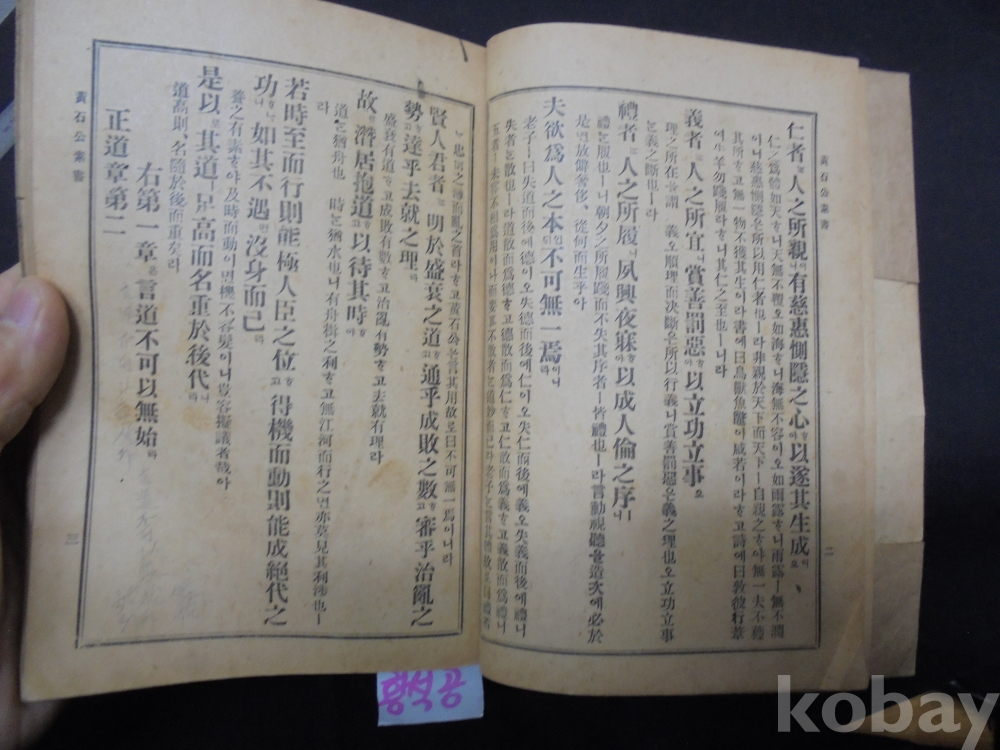 黃石公素書
二
仁者는人之所親이니有慈惠惻隱之心하야以遂其生成이오
仁之爲體如天하니天無不覆오如海하니海無不容이오如雨露하니雨露ㅣ無不潤
이니慈惠惻隱은所以用仁者也ㅣ라非親於天下而天下ㅣ自親之하야無一夫不獲
其所하고無一物不獲其生이라書에曰鳥獸魚鼈이咸若이라하고詩에曰敦彼行葦
에牛羊勿踐履라하니其仁之至也ㅣ니라
義者는人之所宜니賞善罰惡하야以立功立事오
理之所在을謂之義오順理而決斷은所以行義니賞善罰惡은義之理也오立功立事
는義之斷也ㅣ라
禮者는人之所履니夙興夜寐하야以成人倫之序ㅣ니
禮는履也ㅣ니朝夕之所履踐而不失其序者ㅣ皆禮也ㅣ라言動視聽을造次에必於
是면放僻奢侈ㅣ從何而生乎아
夫欲爲人之本인데不可無一焉이니라
老子ㅣ曰失道而後에德이오失德而後에仁이오失仁而後에義오失義而後에禮니
失者는散也ㅣ라道散而爲德하고德散而爲仁하고仁散而爲義하고義散而爲禮니
賢人君者는明於盛衰之道하고通乎成敗之數하고審乎治亂之
勢하고達乎去就之理라
盛衰有道하고成敗有數하고治亂有勢하고去就有理라
故로潛居抱道하고以待其時라
道는猶舟也오時는猶水也니有舟楫之利하고無江河而行之면亦莫見其利涉也ㅣ
라
若時至而行則能極人臣之位하고得機而動則能成絕代之
功하나니如其不遇면沒身而已라
養之有素하야及時而動이면機不容髮이니豈容擬議者哉아
是以로其道ㅣ足高而名重於後代니라
道高則、名隨於後而重矣라
右第一章은言道不可以無始라
正道章第二
黃石公素書
三
황석공
kobay